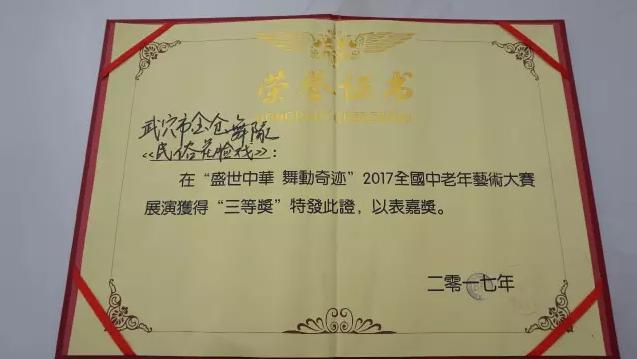 荣誉证书
武穴市金仓舞队
《民俗花脸戏》：
在“盛世中華 舞動奇迹”2017全國中老年藝術大賽
展演獲得“三等獎”特發此證，以表嘉獎。
二零一七年